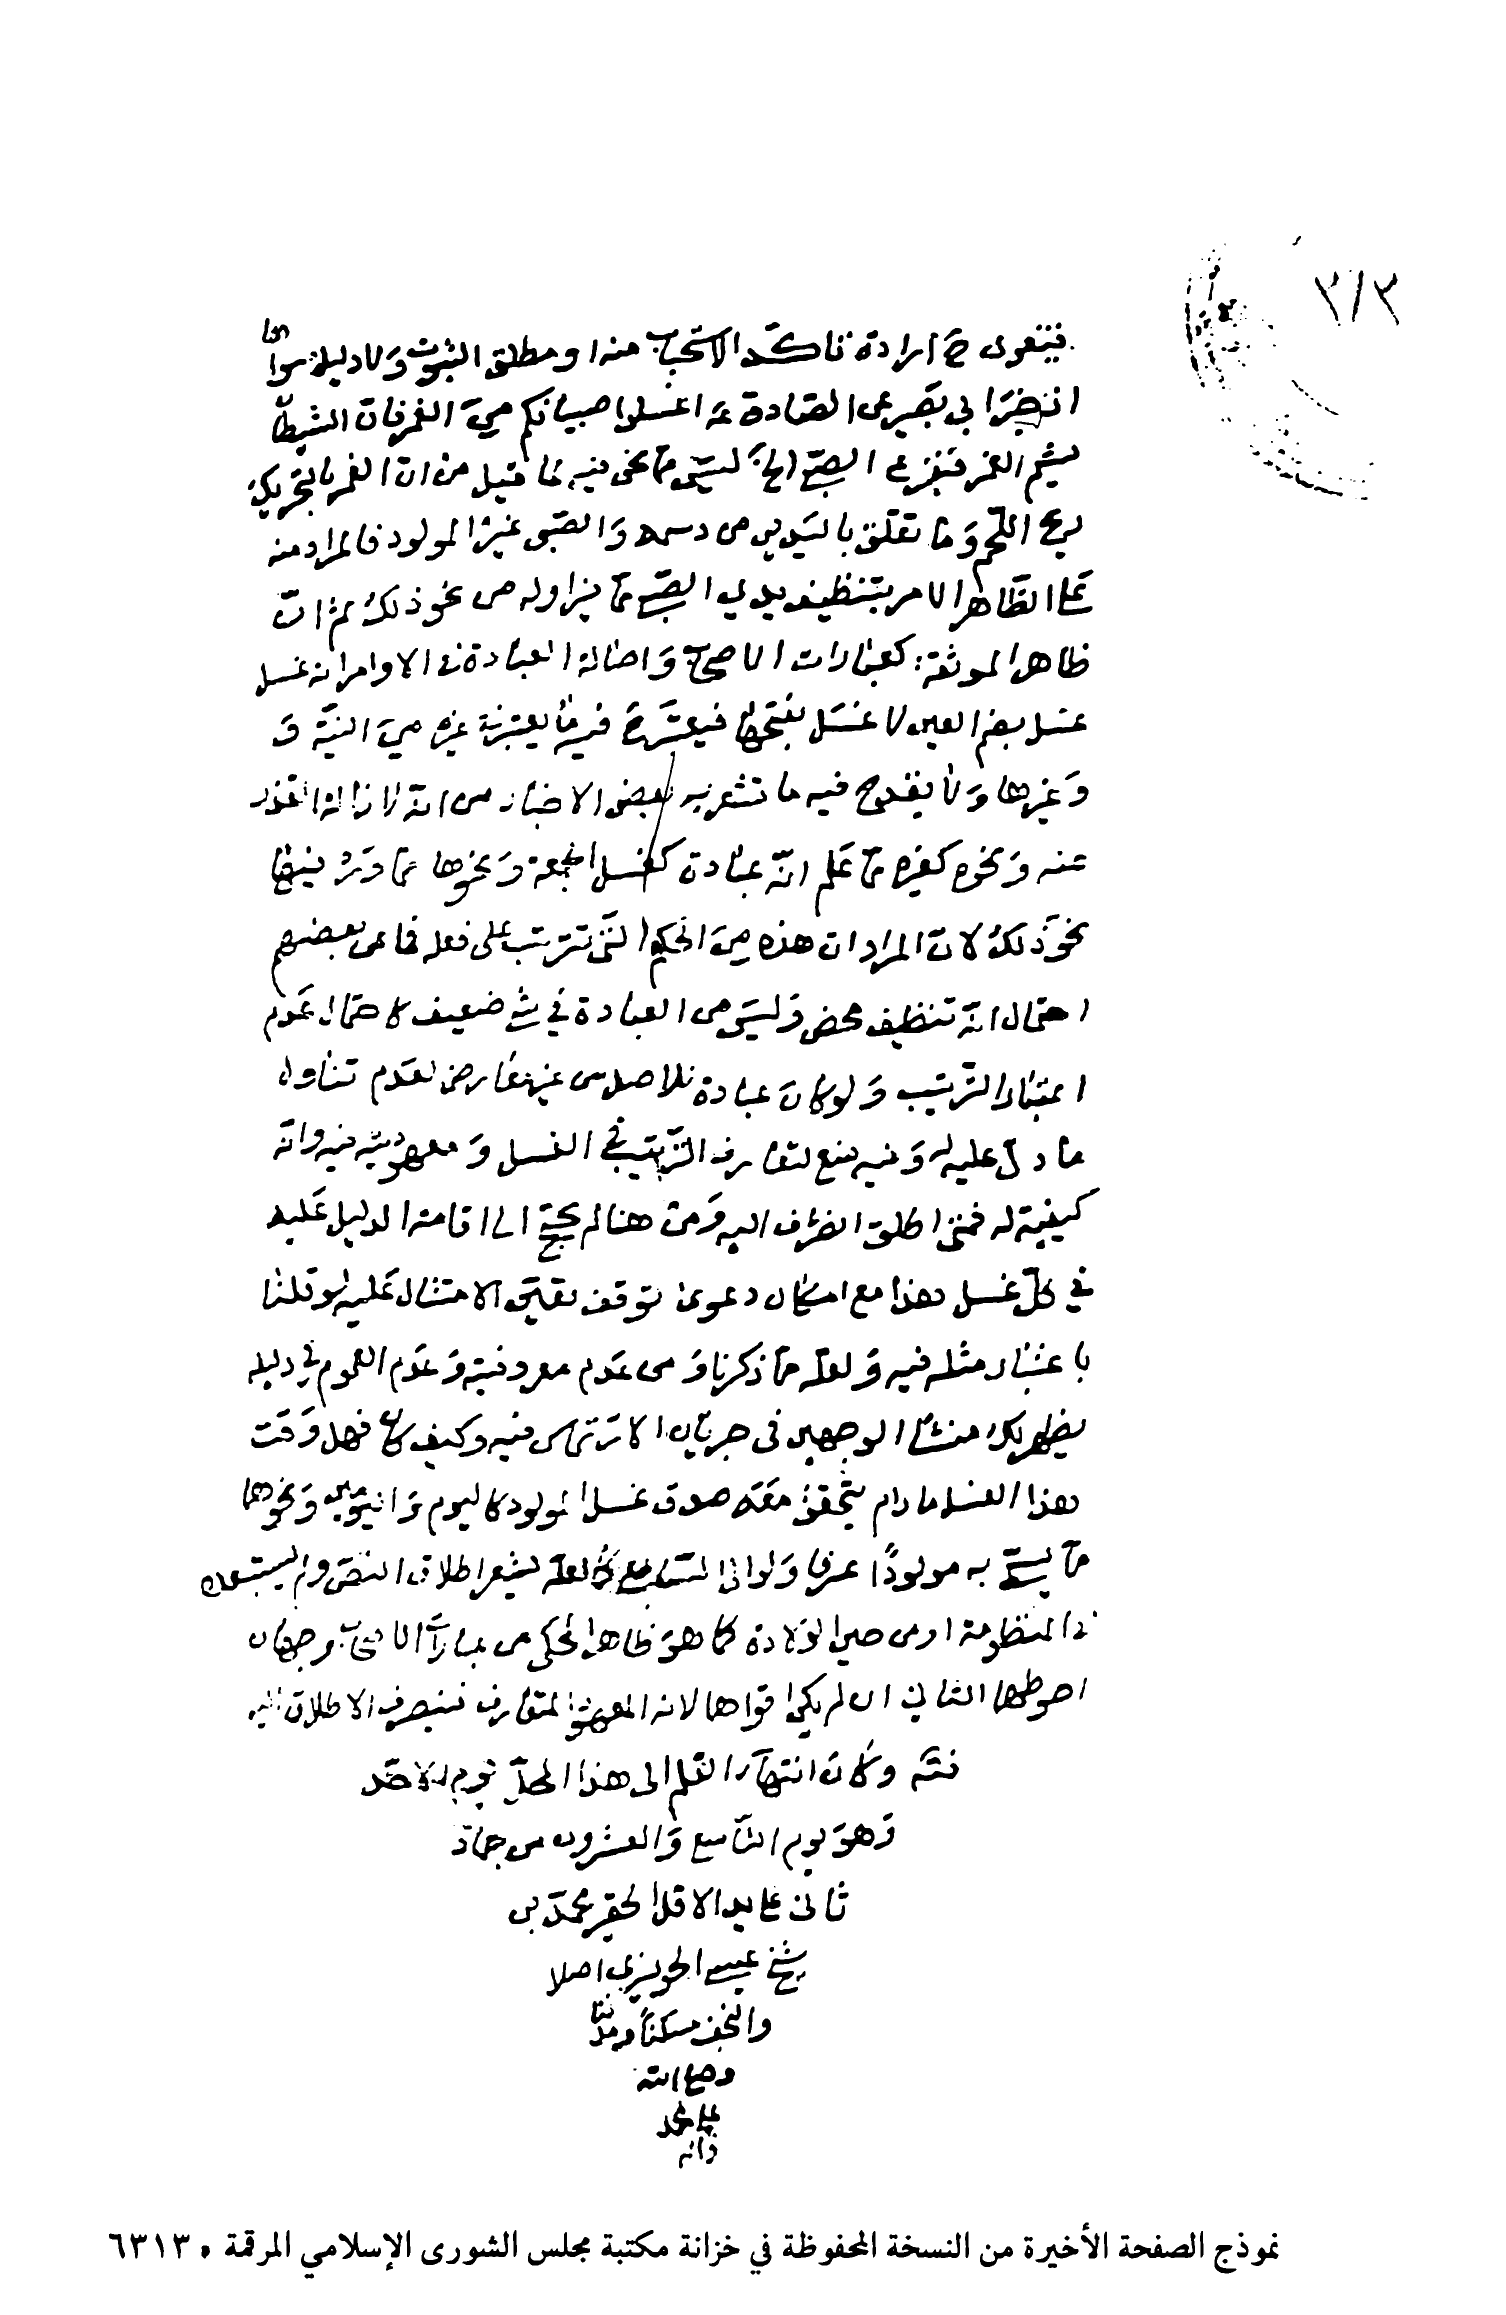 ٣/٣
فيتقوى ح ارادة تاكد الاستحباب منه او مطلق الثبوت ولا دليل سوى
ابي بصير عن الصادق ع اغسلوا صبيانكم من الغمر فان الشيطان
يشم الغمر فيفزع الصبي الخ ليس مما نحن فيه لما قيل من ان الغمر بالتحريك
ريح اللحم وما تعلق باليدين من دسمه والصبي غير المولود فالمراد منه
على الظاهر الامر بتنظيف يدي الصبي مما يزاوله من نحو ذلك ثم ان
ظاهر الموثقة كعبارات الاصحاب واصالة العبادة في الاوامر انه غسل
غسل بضم العين لا غسل بفتحها فيعتبر ح فيه ما يعتبر في غيره من النية و
وغيرها ولا يقدح فيه ما تشعر به بعض الاخبار من انه لازالة القذر
عنه ونحوه كغيره مما علم انه عبادة كغسل الجمعة ونحوها مما ورد فيها
نحو ذلك لان المراد ان هذه من الحكم التي تترتب على فعله فما عن بعضهم
احتمال انه تنظيف محض وليس من العبادة في شئ ضعيف كاحتمال عدم
اعتبار الترتيب ولو كان عبادة للاصل من غير معارض لعدم تناول
ما دل عليه له وفيه منع لتعارف الترتيب في الغسل ومعهوديته فيه وانه
كيفية له فمتى اطلق انصرف اليه ومن هنا لم يحتج الى اقامة الدليل عليه
في كل غسل هذا مع امكان دعوى توقف يقين الامتثال عليه لو قلنا
باعتبار مثله فيه ولعله مما ذكرنا ومن عدم معروفيته وعدم العموم في دليله
يظهر لك منشأ الوجهين في جريان الارتماس فيه وكيف كان فهل وقت
هذا الغسل ما دام يتحقق معه صدق غسل المولود كاليوم واليومين ونحوهما
مما يسمى به مولودًا عرفا ولو الى السابع كما لعله يشعر اطلاق النص ولم يستبعده
في المنظومة او من حين الولادة كما هو ظاهر المحكي من عبارات الاصحاب وجهان
احوطهما الثاني ان لم يكن اقواهما لانه المعهود المتعارف فينصرف الاطلاق اليه
فتم وكان انتهاء القلم الى هذا المحل يوم الاحد
وهو يوم التاسع والعشرون من جماد
ثاني على يد الاقل الحقير محمد بن
شيخ عيسى الحويزي اصلا
والنجف مسكنًا ومدفنا
وصلى الله
على محمد
واله
نموذج الصفحة الأخيرة من النسخة المحفوظة في خزانة مكتبة مجلس الشورى الإسلامي المرقمة ٦٣١٣٥